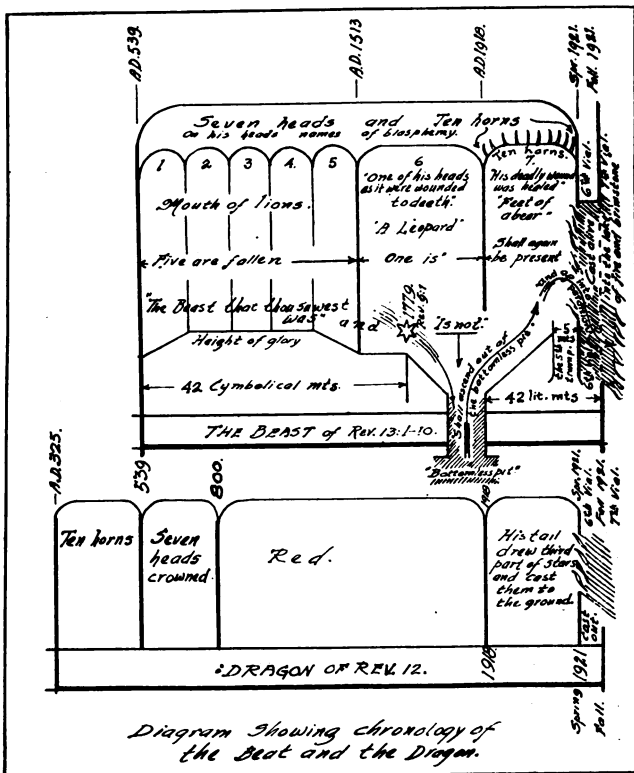 A.D.539.
A.D.1513
A.D.1918.
Spr. 1921.
Fall. 1921.
Seven heads and Ten horns
On his heads names of blasphemy.
1 2 3 4. 5
Mouth of lions.
Five are fallen
"The Beast that thou sawest
was"
and
Height of glory
42 Cymbolical mts.
6
"One of his heads
as it were wounded
to death."
"A Leopard"
One is"
1779.
Rev. 9:1
"Is not."
Ten horns.
7.
His deadly wound
was healed"
"Feet of
a bear"
Shall again
be present
Shall ascend out of
the bottomless pit"
"and go
5
mts
the 5th
trump.
42 lit. mts
6th Vial.
7th Vial.
Cast alive
into the lake
of fire and brimstone
THE BEAST of Rev. 13:1-10.
"Bottomless pit"
A.D.325.
539
800.
1918
Spr. 1921.
6th Vial.
Fall 1921.
7th Vial.
Ten horns
Seven
heads
crowned.
Red.
His tail
drew third
part of stars
and cast
them to
the ground.
Cast
out.
DRAGON OF REV. 12.
1918.
Spring 1921
Fall.
Diagram Showing chronology of
the Beat and the Dragon.